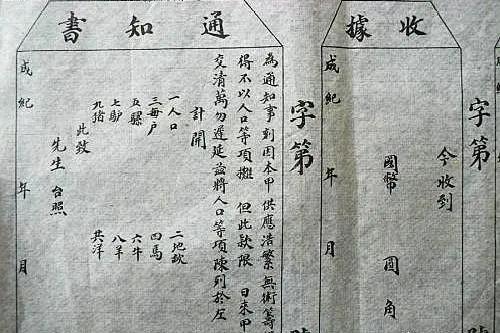 字第
收據
今收到
國幣 圓 角
成紀 年 月
字第
通知書
為通知事刻因本甲供應浩繁無術籌
得不以人口等項攤 但此款限 日來甲
交清萬勿遲延茲將人口等項陳列於左
計開
一人口 二地畝
三每户 四馬
五騾 六牛
七驢 八羊
九猪 共洋
此致
先生 台照
成紀 年 月